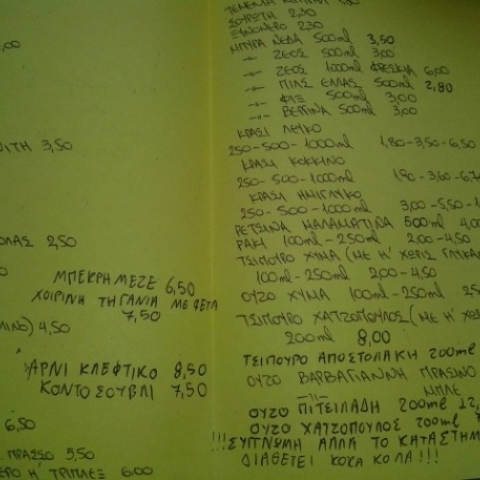 ,00
ΙΤΗ 3,50
ΛΑΣ 2,50
ΜΠΕΚΡΗ ΜΕΖΕ 6,50
ΧΟΙΡΙΝΗ ΤΗΓΑΝΙΑ ΜΕ ΦΕΤΑ
7,50
ΙΝΟ) 4,50
ΑΡΝΙ ΚΛΕΦΤΙΚΟ 8,50
ΚΟΝΤΟΣΟΥΒΛΙ 7,50
6,50
. ΠΡΑΣΟ 5,50
ΕΡΟ Η' ΤΡΙΠΛΕΞ 6.00
ΣΟΥΡΩΤΗ 2,30
ΞΥΝΟΝΕΡΟ 2.30
ΜΠΥΡΑ ΝΕΔΑ 500ml 3,50
-"- ΖΕΟΣ 500ml 3,00
-"- ΖΕΟΣ 1000ml ΦΡΕΣΚΙΑ 6,00
-"- ΠΙΛΣ ΕΛΛΑΣ 500ml 2,80
-"- ΦΙΞ 500ml 3,00
-"- ΒΕΡΓΙΝΑ 500ml 3,00
ΚΡΑΣΙ ΛΕΥΚΟ
250-500-1000ml 1,80-3,50-6,50
ΚΡΑΣΙ ΚΟΚΚΙΝΟ
250-500-1000ml 1,90-3,60-6,7
ΚΡΑΣΙ ΗΜΙΓΛΥΚΟ
250-500-1000ml 3,00-5,50-1
ΡΕΤΣΙΝΑ ΜΑΛΑΜΑΤΙΝΑ 500ml 4,00
ΡΑΚΙ 100ml-250ml 2,00-4,50
ΤΣΙΠΟΥΡΟ ΧΥΜΑ (ΜΕ Η' ΧΩΡΙΣ ΓΛΥΚΑΝ
100ml-250ml 2,00-4,50
ΟΥΖΟ ΧΥΜΑ 100ml-250ml 2,5
ΤΣΙΠΟΥΡΟ ΧΑΤΖΟΠΟΥΛΟΣ (ΜΕ Η' ΧΩΡ
200ml 8,00
ΤΣΙΠΟΥΡΟ ΑΠΟΣΤΟΛΑΚΗ 200ml
ΟΥΖΟ ΒΑΡΒΑΓΙΑΝΝΗ ΠΡΑΣΙΝΟ
-"- ΜΠΛΕ
ΟΥΖΟ ΠΙΤΣΙΛΑΔΗ 200ml 12,
ΟΥΖΟ ΧΑΤΖΟΠΟΥΛΟΣ 200ml
!!!ΣΥΓΓΝΩΜΗ ΑΛΛΑ ΤΟ ΚΑΤΑΣΤΗΜ
ΔΙΑΘΕΤΕΙ ΚΟΚΑ ΚΟΛΑ!!!